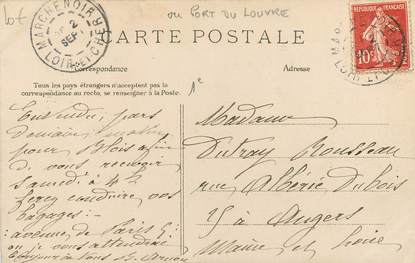 Lot ou PORT DU LOUVRE
MARCHENOIR
2
SEPT
LOIR-ET-CHER
CARTE POSTALE
REPUBLIQUE FRANÇAISE
10c
Correspondance
Adresse
Tous les pays étrangers n'acceptent pas la
correspondance au recto, se renseigner à la Poste.
1e
Entendu, pars
demain matin
pour Blois afin
de vous recevoir
samedi à 4h
ferez conduire vos
bagages :
avenue de Paris 5 :
où je vous attendrai
Bonjour à tous
Madame
Dutray Rousseau
rue Albéric Dubois
25 à Angers
Maine et Loire